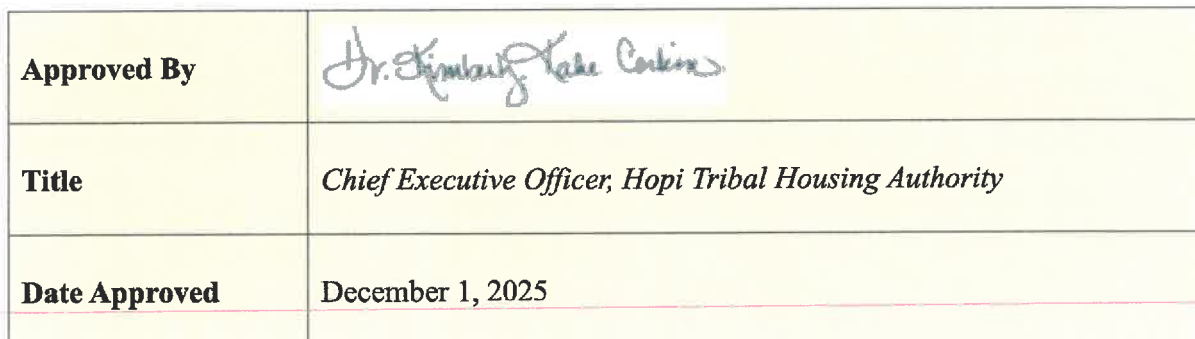 Approved By Dr. Kimberly
Title Chief Executive Officer, Hopi Tribal Housing Authority
Date Approved December 1, 2025